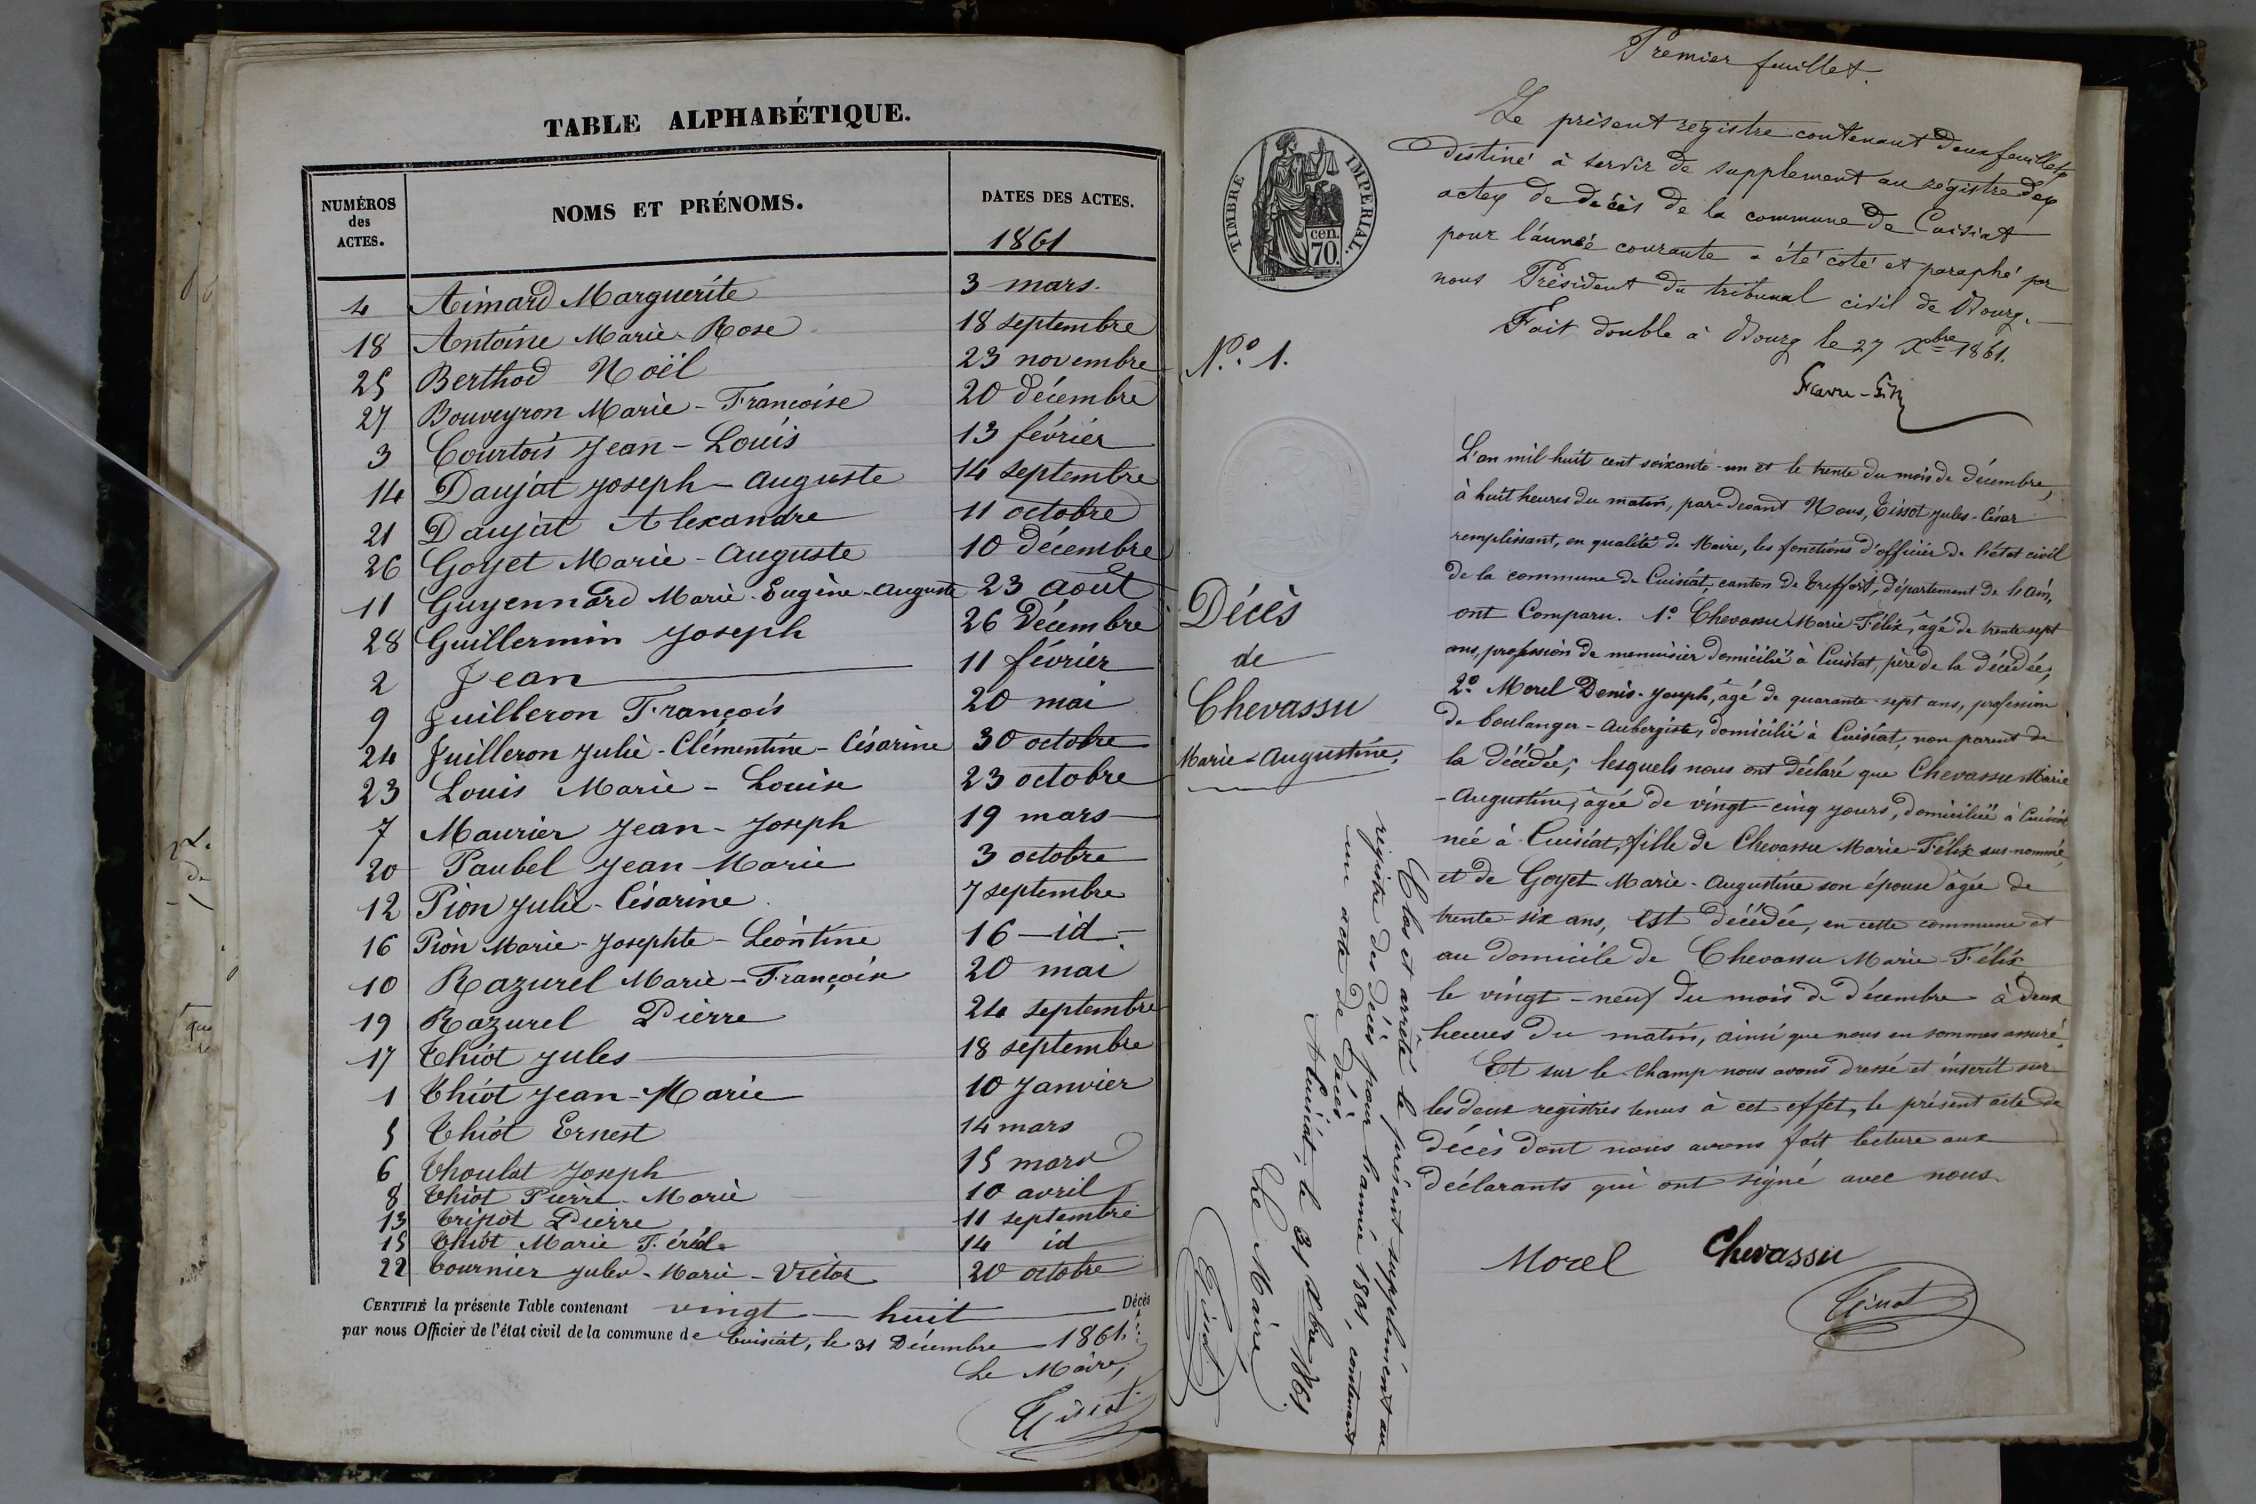 TABLE ALPHABÉTIQUE.
NUMÉROS des ACTES. NOMS ET PRÉNOMS. DATES DES ACTES.
1861
4 Aimard Marguerite 3 mars.
18 Antoine Marie-Rose 18 septembre
25 Berthod Noël 23 novembre
27 Bouveyron Marie-Francoise 20 décembre
3 Courtois Jean-Louis 13 février
14 Daujat Joseph-Auguste 14 septembre
21 Daujat Alexandre 11 octobre
26 Goyet Marie-Auguste 10 décembre
11 Guyennard Marie-Eugène-Auguste 23 août
28 Guillermin Joseph 26 Décembre
2 Jean 11 février
9 Juilleron François 20 mai
24 Juilleron Julie-Clémentine-Césarine 30 octobre
23 Louis Marie-Louise 23 octobre
7 Maurier Jean-Joseph 19 mars
20 Paubel Jean-Marie 3 octobre
12 Pion Julie-Césarine 7 septembre
16 Pion Marie-Josephte-Léontine 16 -id-
10 Razurel Marie-Françoise 20 mai
19 Razurel Pierre 24 septembre
17 Thiot Jules 18 septembre
1 Thiot Jean-Marie 10 Janvier
5 Thiot Ernest 14 mars
6 Thoulat Joseph 15 mars
8 Thiot Pierre-Marie 10 avril
13 Tripot Pierre 11 septembre
15 Thiot Marie 14 id
22 Tournier Jules-Marie-Victor 20 octobre
CERTIFIÉ la présente Table contenant vingt-huit Décès
par nous Officier de l'état civil de la commune de Cuisiat, le 31 Décembre 1861.
Le Maire,
Tissot
Premier feuillet.
TIMBRE IMPÉRIAL.
cen. 70.
Le présent registre contenant deux feuillets
destiné à servir de supplement au registre des
actes de décès de la commune de Cuisiat
pour l'année courante a été coté et paraphé par
nous Président du tribunal civil de Bourg.
Fait double à Bourg le 27 Xbre 1861.
N.° 1.
Décès
de
Chevassu
Marie-Augustine.
L'an mil huit cent soixante-un et le trente du mois de décembre,
à huit heures du matin, par-devant Nous, Tissot Jules-César
remplissant, en qualité de Maire, les fonctions d'officier de l'état civil
de la commune de Cuisiat, canton de Treffort, département de l'Ain,
ont Comparu. 1° Chevassu Marie-Félix, âgé de trente-sept
ans, profession de menuisier domicilié à Cuisiat, père de la décédée;
2° Morel Denis-Joseph, âgé de quarante-sept ans, profession
de boulanger-Aubergiste, domicilié à Cuisiat, non parent de
la décédée; lesquels nous ont déclaré que Chevassu Marie
-Augustine, âgée de vingt-cinq jours, domiciliée à Cuisiat
née à Cuisiat, fille de Chevassu Marie-Félix sus-nommé,
et de Goyet Marie-Augustine son épouse âgée de
trente-six ans, est décédée, en cette commune et
au domicile de Chevassu Marie-Félix
le vingt-neuf du mois de décembre à deux
heures du matin, ainsi que nous en sommes assuré.
Et sur le champ nous avons dressé et inscrit sur
les deux registres tenus à cet effet, le présent acte de
décès dont nous avons fait lecture aux
déclarants qui ont signé avec nous.
Morel Chevassu
Tissot
Clos et arrêté le présent supplément au
registre des décès pour l'année 1861, contenant
un acte de Décès.
A Cuisiat, le 31 Xbre 1861.
Le Maire
Tissot